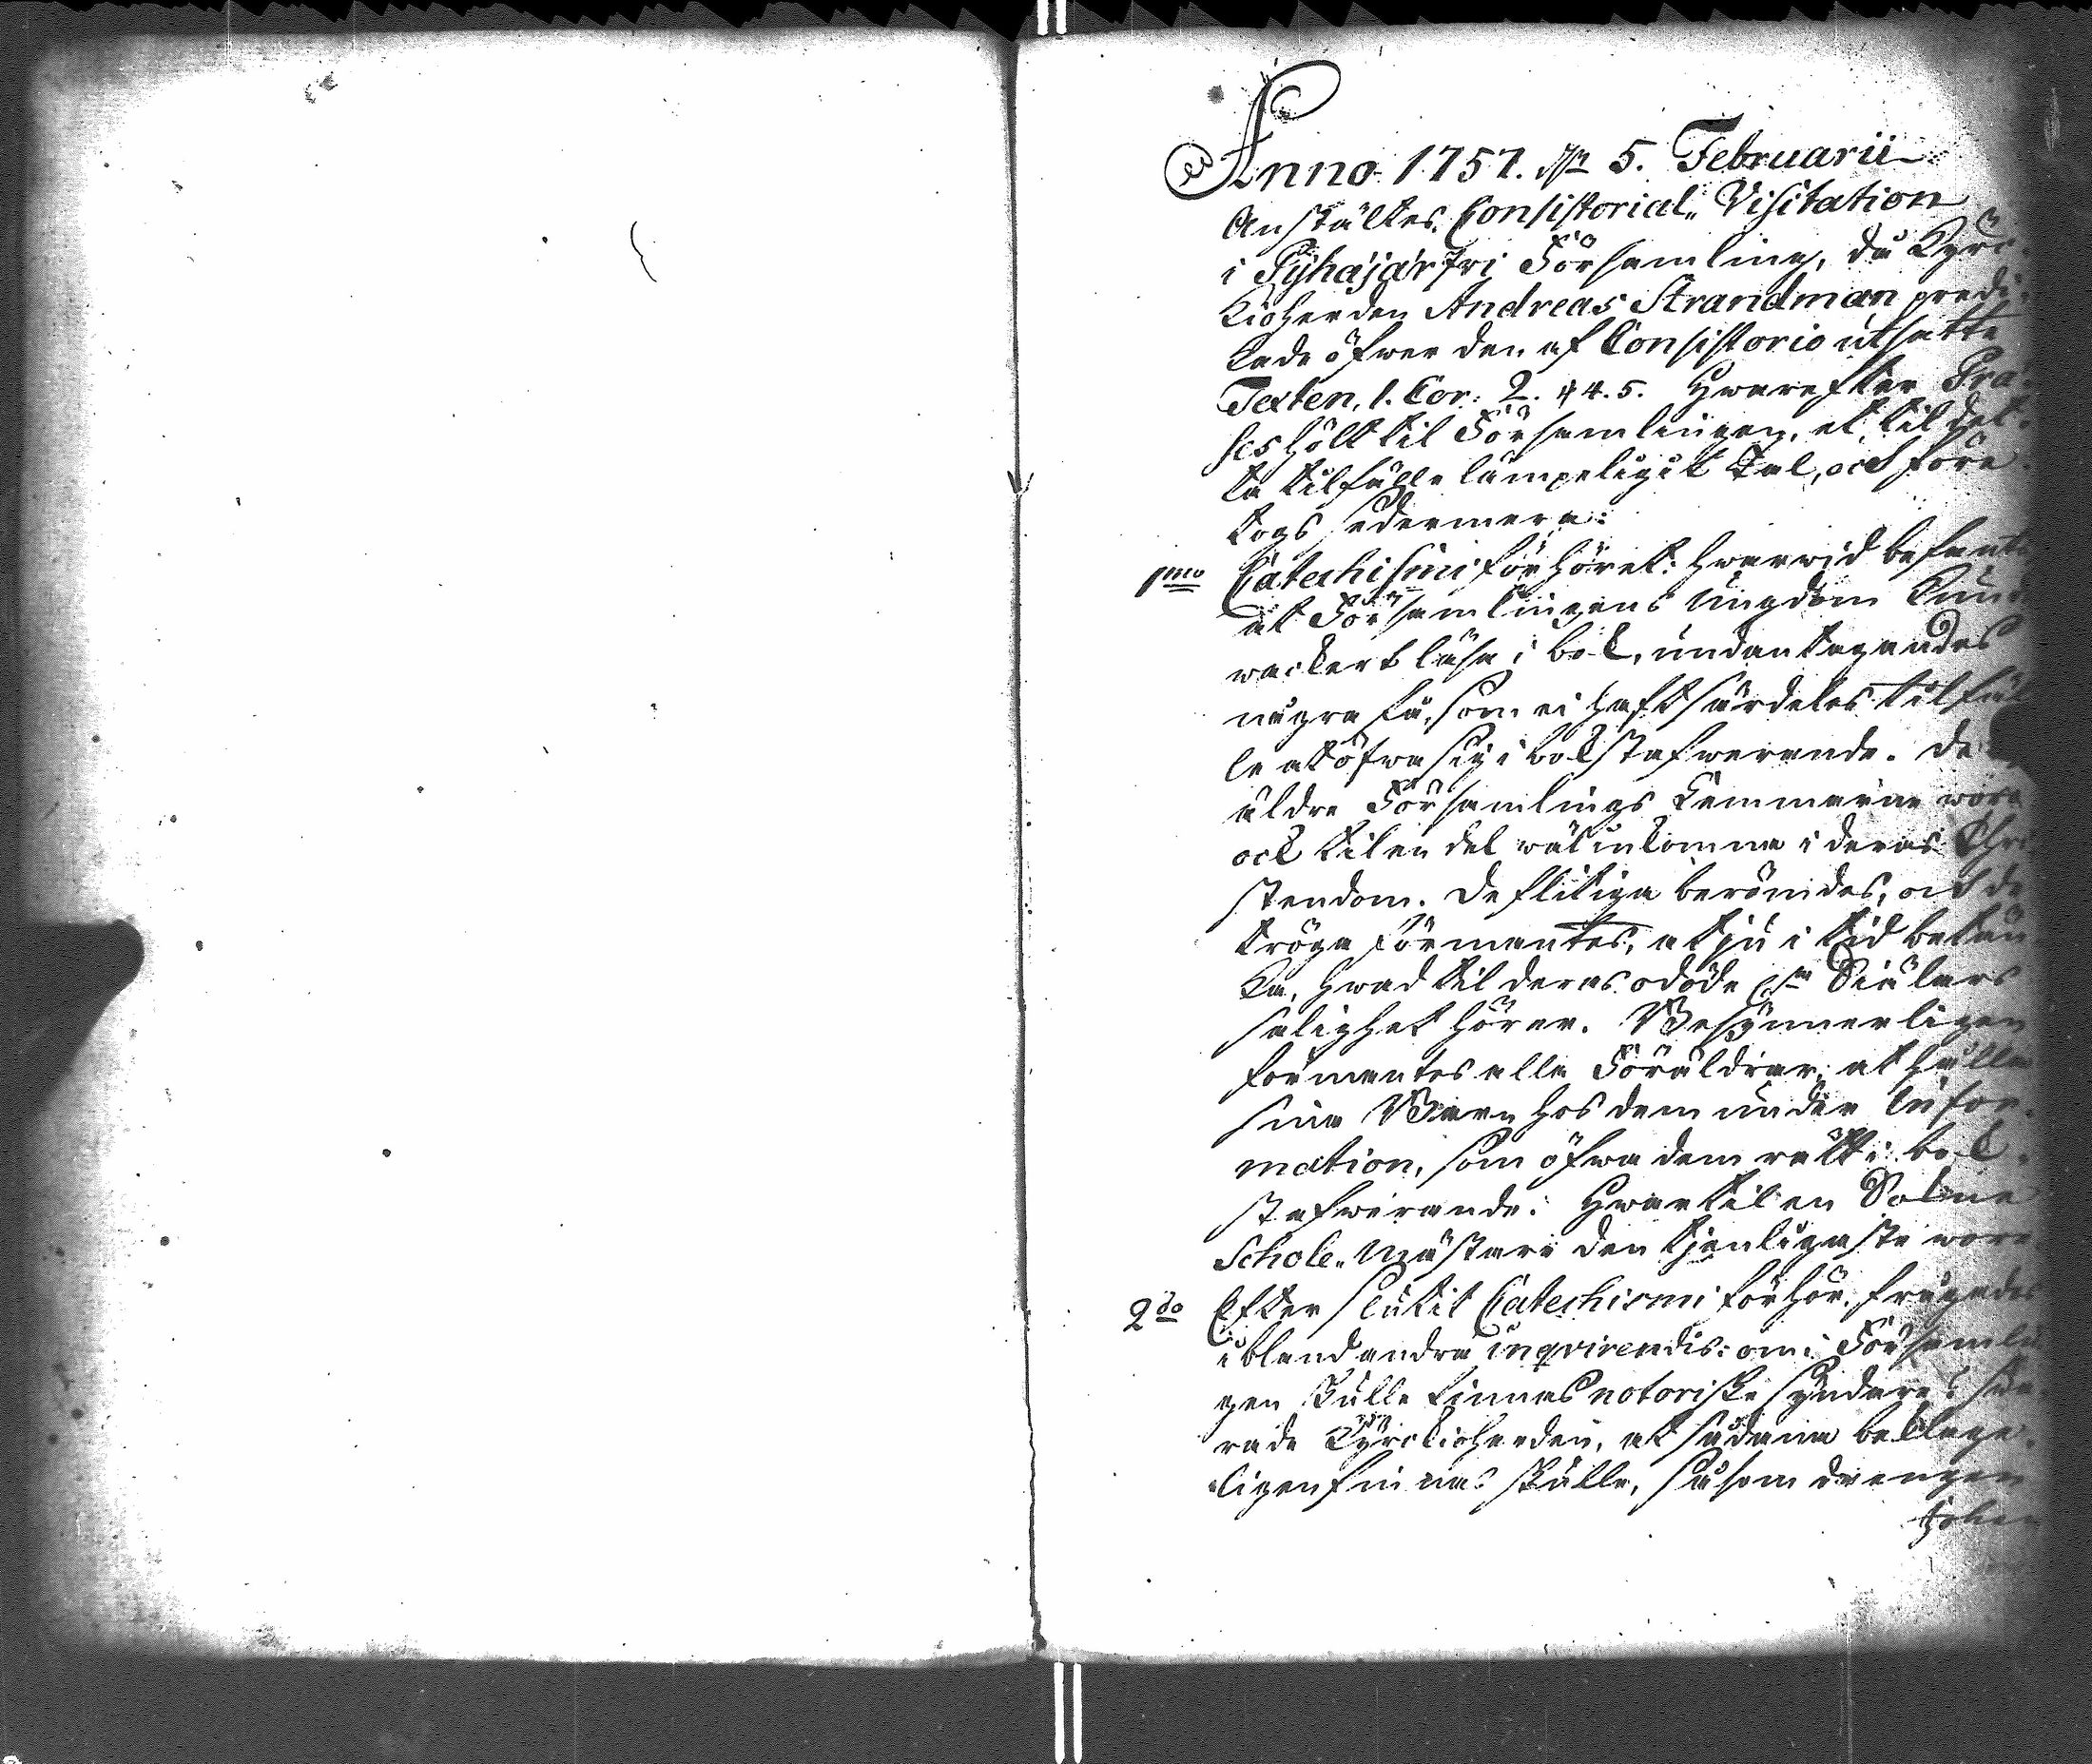 Anno 1757. d. 5. Februarii
Anstältes Consistorial„ Visitation
i Pyhäjärfvi Församling, då Kyrc-
kioherden Andreas Strandman predi-
kade öfwer den af Consistorio utsatte
Texten, 1. Cor: 2. 4. 5. Hwarefter Præ-
ses hölt til Församlingen, et til det-
ta tilfälle lämpeligit Tal, och före-
togs sedermera:
1mo Catechismi förhöret: hwarwid befants
at Församlingens Ungdom kun
wackert läsa i bok, undantagandes
några få, som ei haft särdeles tilfäl
le at öfwa sig i bokstafwerande. De
äldre Församlings Lemmarne woro
ock til en del wäl inkomne i deras Chri
stendom. De flitiga berömdes, och de
tröga förmantes, at ju i tid betän-
ka, hwad til deras odödeliga Siälars
salighet hörer. Besynnerligen
förmantes alla Föräldrar, at hålla
sina Barn hos dem under Infor-
mation, som öfwa dem rätt i bok-
stafwerande: hwartil en Sokne
Schole„ Mästare den tjenligaste wore.
2do Efter slutit Catechismi förhör, frågades
ibland andra inqvirendis: om i Församl
gen skulle finnas notoriske syndare? swa-
rade Kyrckioherden, at sådane beklage-
ligen finnas skulle, såsom drengen
Johan